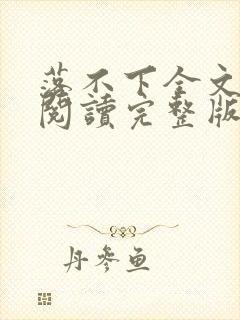 落不下全文
閱讀完整版
丹參魚